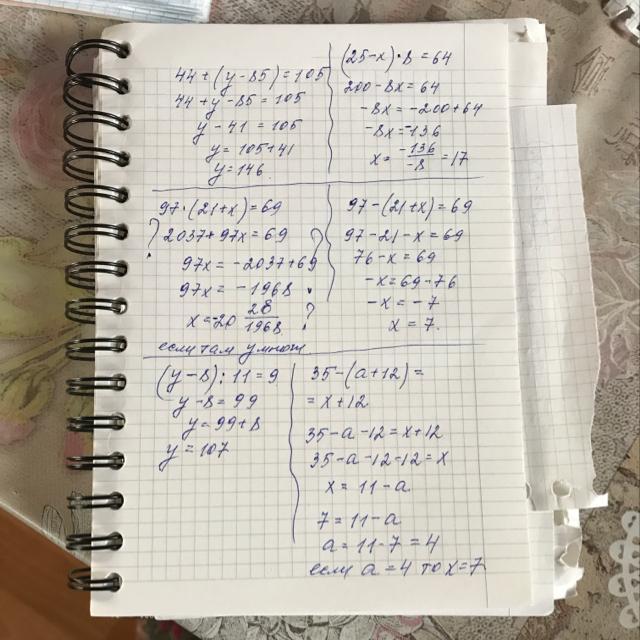 44+(y-85)=105
44+y-85=105
y-41=105
y=105+41
y=146.
(25-x)·8=64
200-8x=64
-8x=-200+64
-8x=-136
x= -136/-8 =17
97·(21+x)=69
? 2037+97x=69 ?
97x=-2037+69
97x=-1968
x=20 28/1968 ?
если там умнож.
97-(21+x)=69
97-21-x=69
76-x=69
-x=69-76
-x=-7
x=7.
(y-8):11=9
y-8=99
y=99+8
y=107
35-(a+12)=
=x+12
35-a-12=x+12
35-a-12-12=x
x=11-a
7=11-a
a=11-7=4
если a=4 то x=7